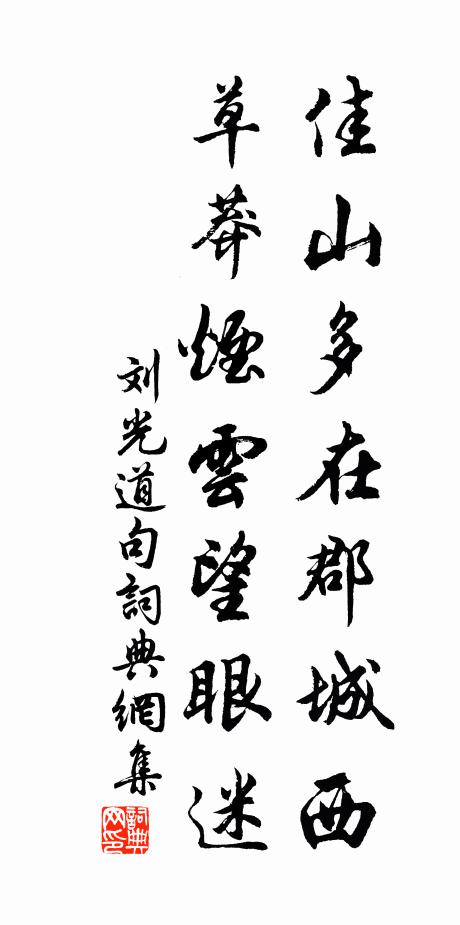 佳山多在郡城西
草莽煙雲望眼迷
刘光道句詞典網集
詞典网印